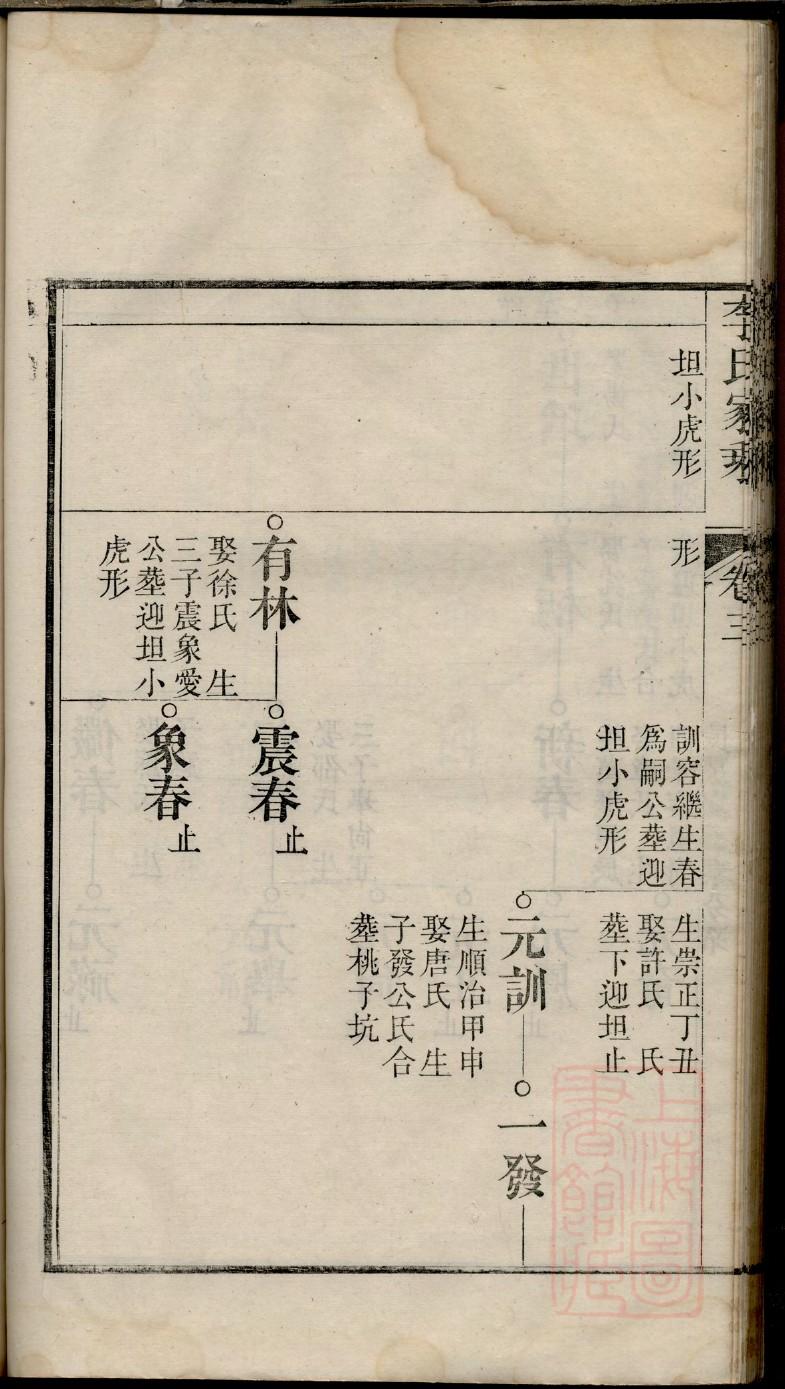 李氏家乘
卷三
坦小虎形
形
訓容繼生春
爲嗣公塟迎
坦小虎形
生崇正丁丑
娶許氏　氏
塟下迎坦止
元訓
生順治甲申
娶唐氏　生
子發公氏合
塟桃子坑
一發
有林
娶徐氏　生
三子震象愛
公塟迎坦小
虎形
震春止
象春止
上海圖
書館藏